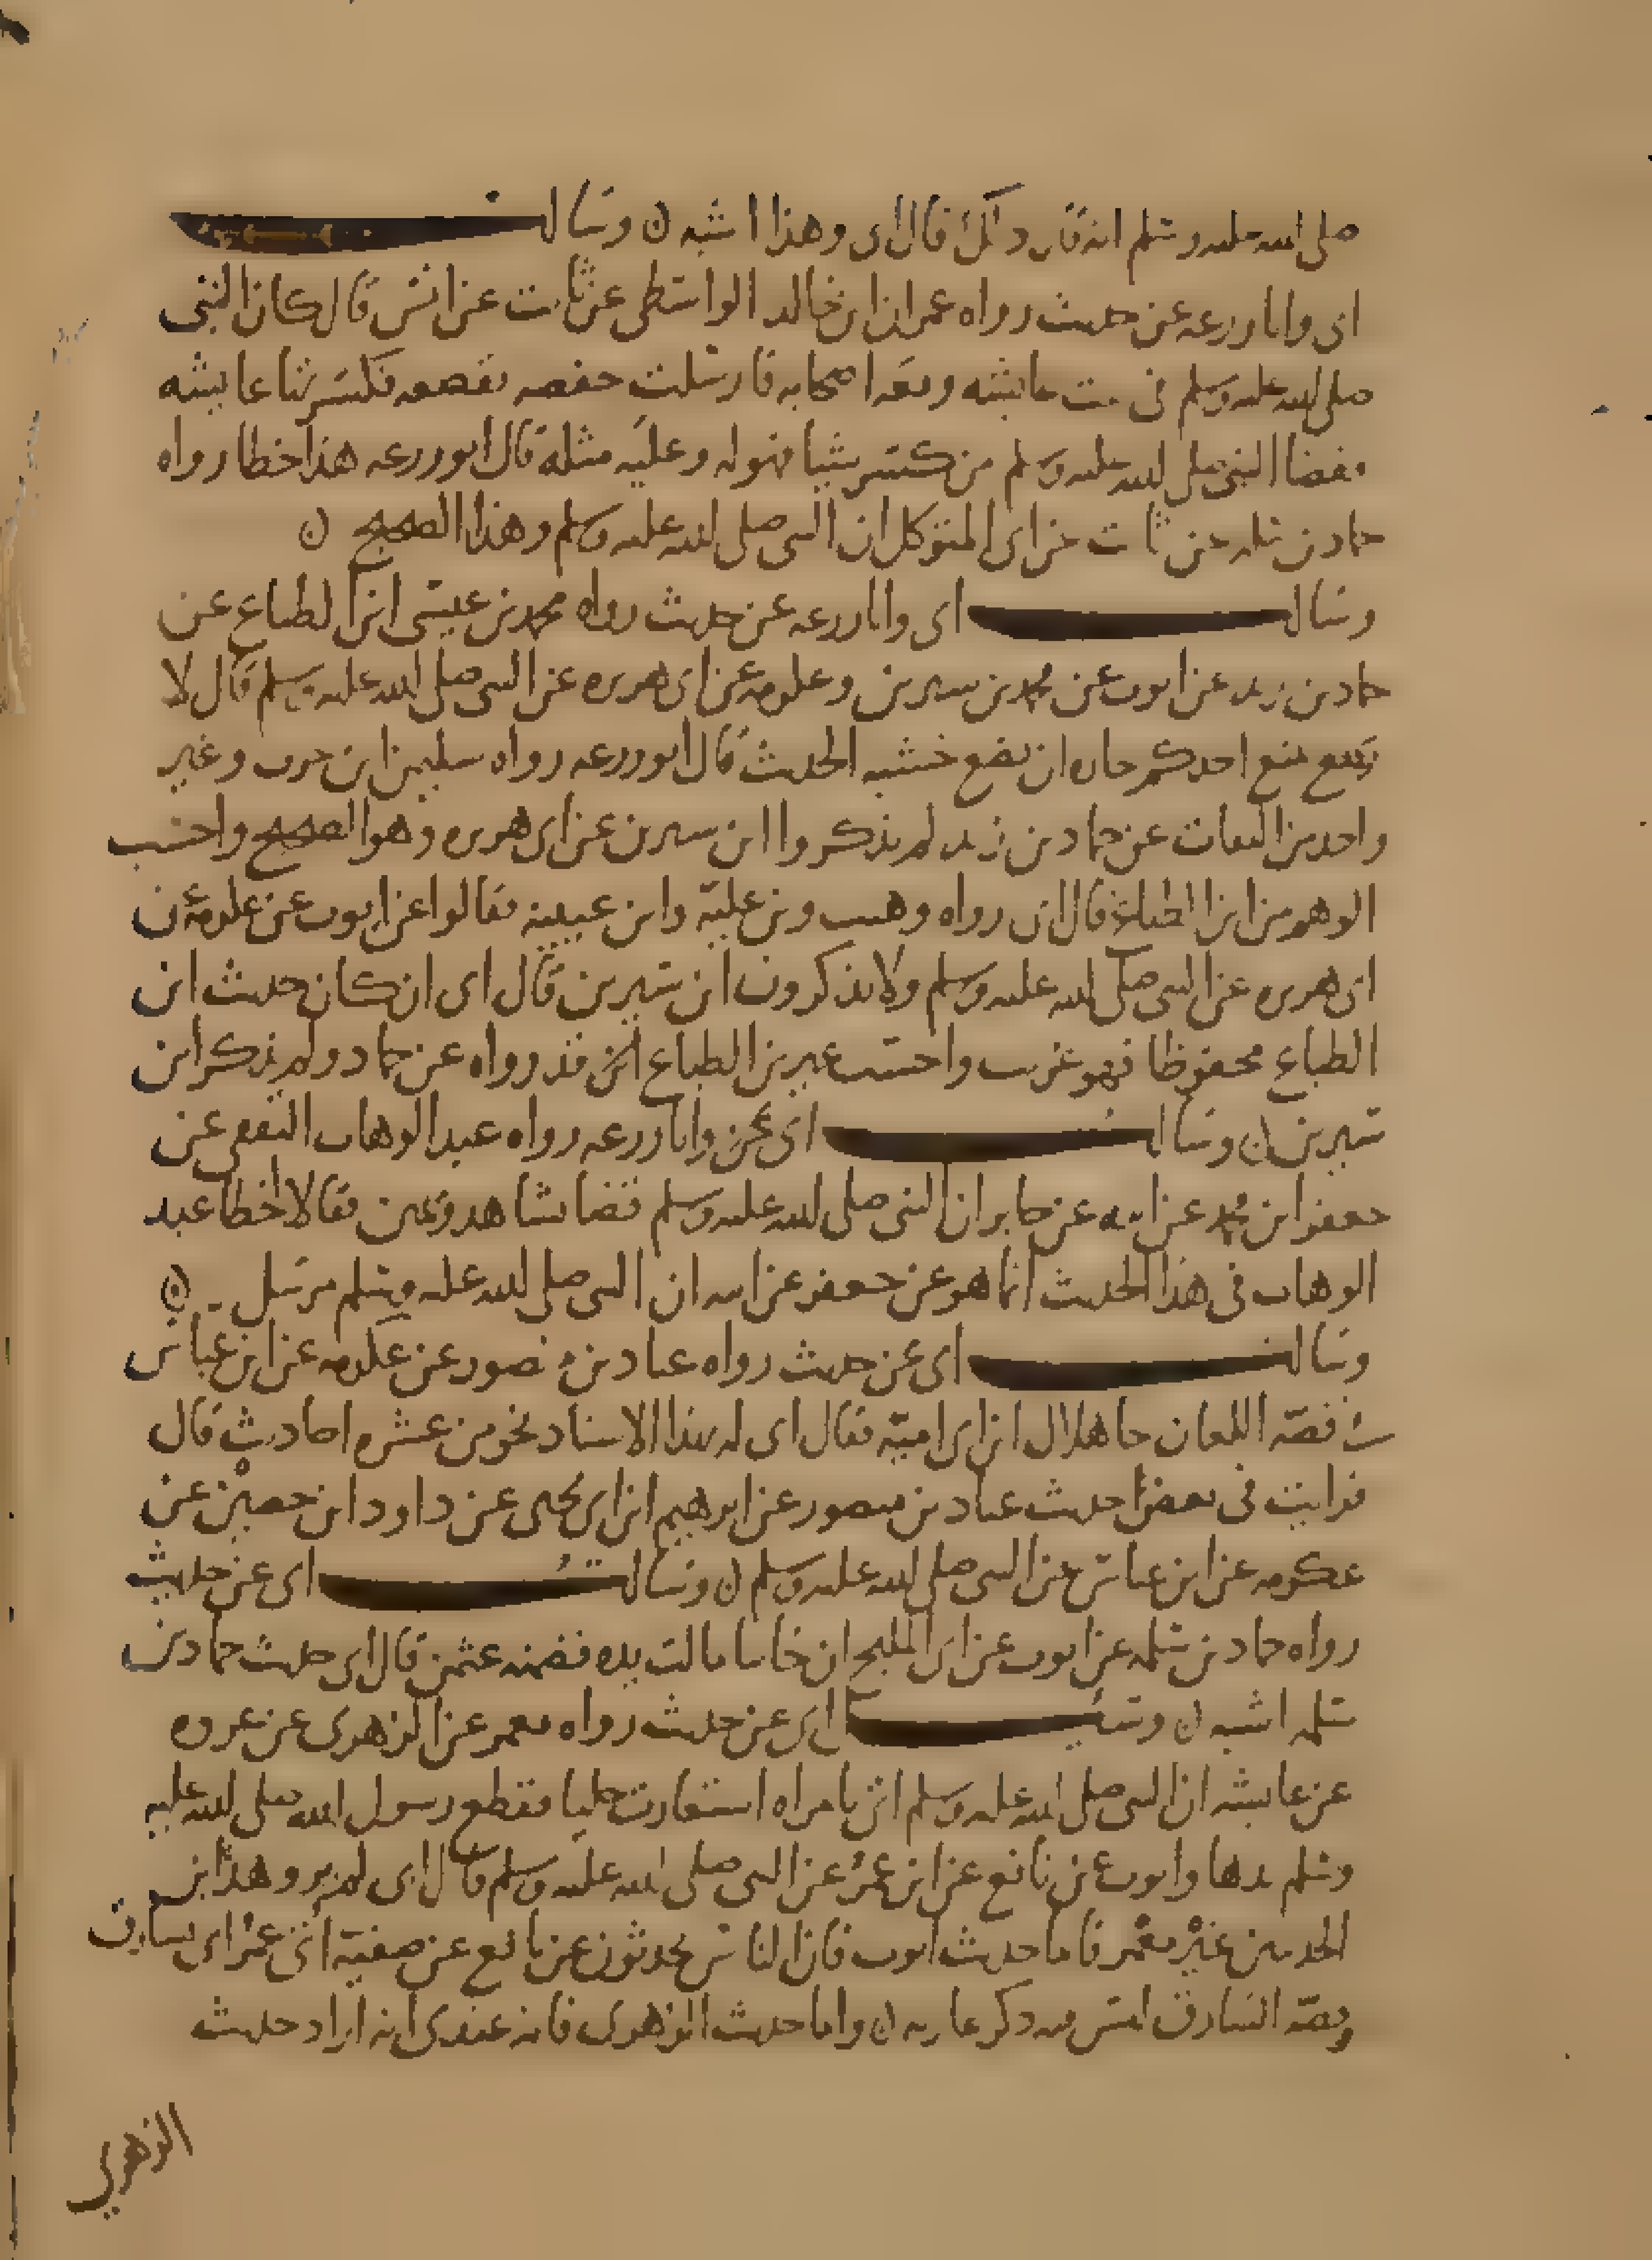 صلى الله عليه وسلم انه قال ذلك قال ابى وهذا اشبه ن وسالت
ابى وابا زرعه عن حديث رواه عمران ابن خالد الواسطى عن ثابت عن انس قال كان النبى
صلى الله عليه وسلم فى بيت عايشه ومعه اصحابه فارسلت حفصه بقصعه فكسرتها عايشه
فقضا النبى صلى الله عليه وسلم من كسر شيا فهو له وعليه مثله قال ابو زرعه هذا خطا رواه
حماد بن سلمه عن ثابت عن ابى المتوكل ان النبى صلى الله عليه وسلم وهذا الصحيح ن
وسالت ابى وابا زرعه عن حديث رواه محمد بن عيسى ابن الطباع عن
حماد بن زيد عن ايوب عن محمد بن سيرين وعكرمه عن ابى هريره عن النبى صلى الله عليه وسلم قال لا
يمنع احدكم جاره ان يضع خشبه الحديث قال ابو زرعه رواه سليمن ابن حرب وغير
واحد من الثقات عن حماد بن زيد لم يذكروا ابن سيرين عن ابى هريره وهو الصحيح واحسب
الوهم من ابن الطباع قال ابى رواه وهيب وبن عليّه وابن عيينه فقالوا عن ايوب عن عكرمه عن
ابى هريره عن النبى صلى الله عليه وسلم ولا يذكرون ابن سيرين قال ابى ان كان حديث ابن
الطباع محفوظا فهو غريب واحسب غير بن الطباع قد رواه عن حماد ولم يذكر ابن
سيرين ن وسالت ابى وابا زرعه عن رواه عبد الوهاب الثقفى عن
جعفر ابن محمد عن ابيه عن جابر ان النبى صلى الله عليه وسلم قضا بشاهد ويمين فقالا اخطا عبد
الوهاب فى هذا الحديث انما هو عن جعفر عن ابيه ان النبى صلى الله عليه وسلم مرسل ن
وسالت ابى عن حديث رواه عباد بن منصور عن عكرمه عن ابن عباس
فى قصّه اللعان جا هلال ابن ابى اميّه فقال ابى له بهذا الاسناد نحو من عشره احاديث قال
فرايت فى بعض حديث عباد بن منصور عن ابرهيم ابن ابى يحيى عن داود ابن حصين عن
عكرمه عن ابن عباس عن النبى صلى الله عليه وسلم ن وسالت ابى عن حديث
رواه حماد بن سلمه عن ايوب عن ابى المليح ان بده فضمنه عثمن قال ابى حديث حماد بن
سلمه اشبه ن وسيل ابى عن حديث رواه معمر عن الزهرى عن عروه
عن عايشه ان النبى صلى الله عليه وسلم اتى بامراه استعارت حليا فقطع رسول الله صلى الله عليه
وسلم يدها وايوب عن نافع عن ابن عمر عن النبى صلى الله عليه وسلم قال ابى لم يرو هذين
الحديثين غير معمر فاما حديث ايوب فان الناس يحدثون عن نافع عن صفيّه ان عمر اتى بسارق
وقصّه السارق ليس فيه ذكر عاريه ن واما حديث الزهرى فانه عندى انه اراد حديث
الزهري